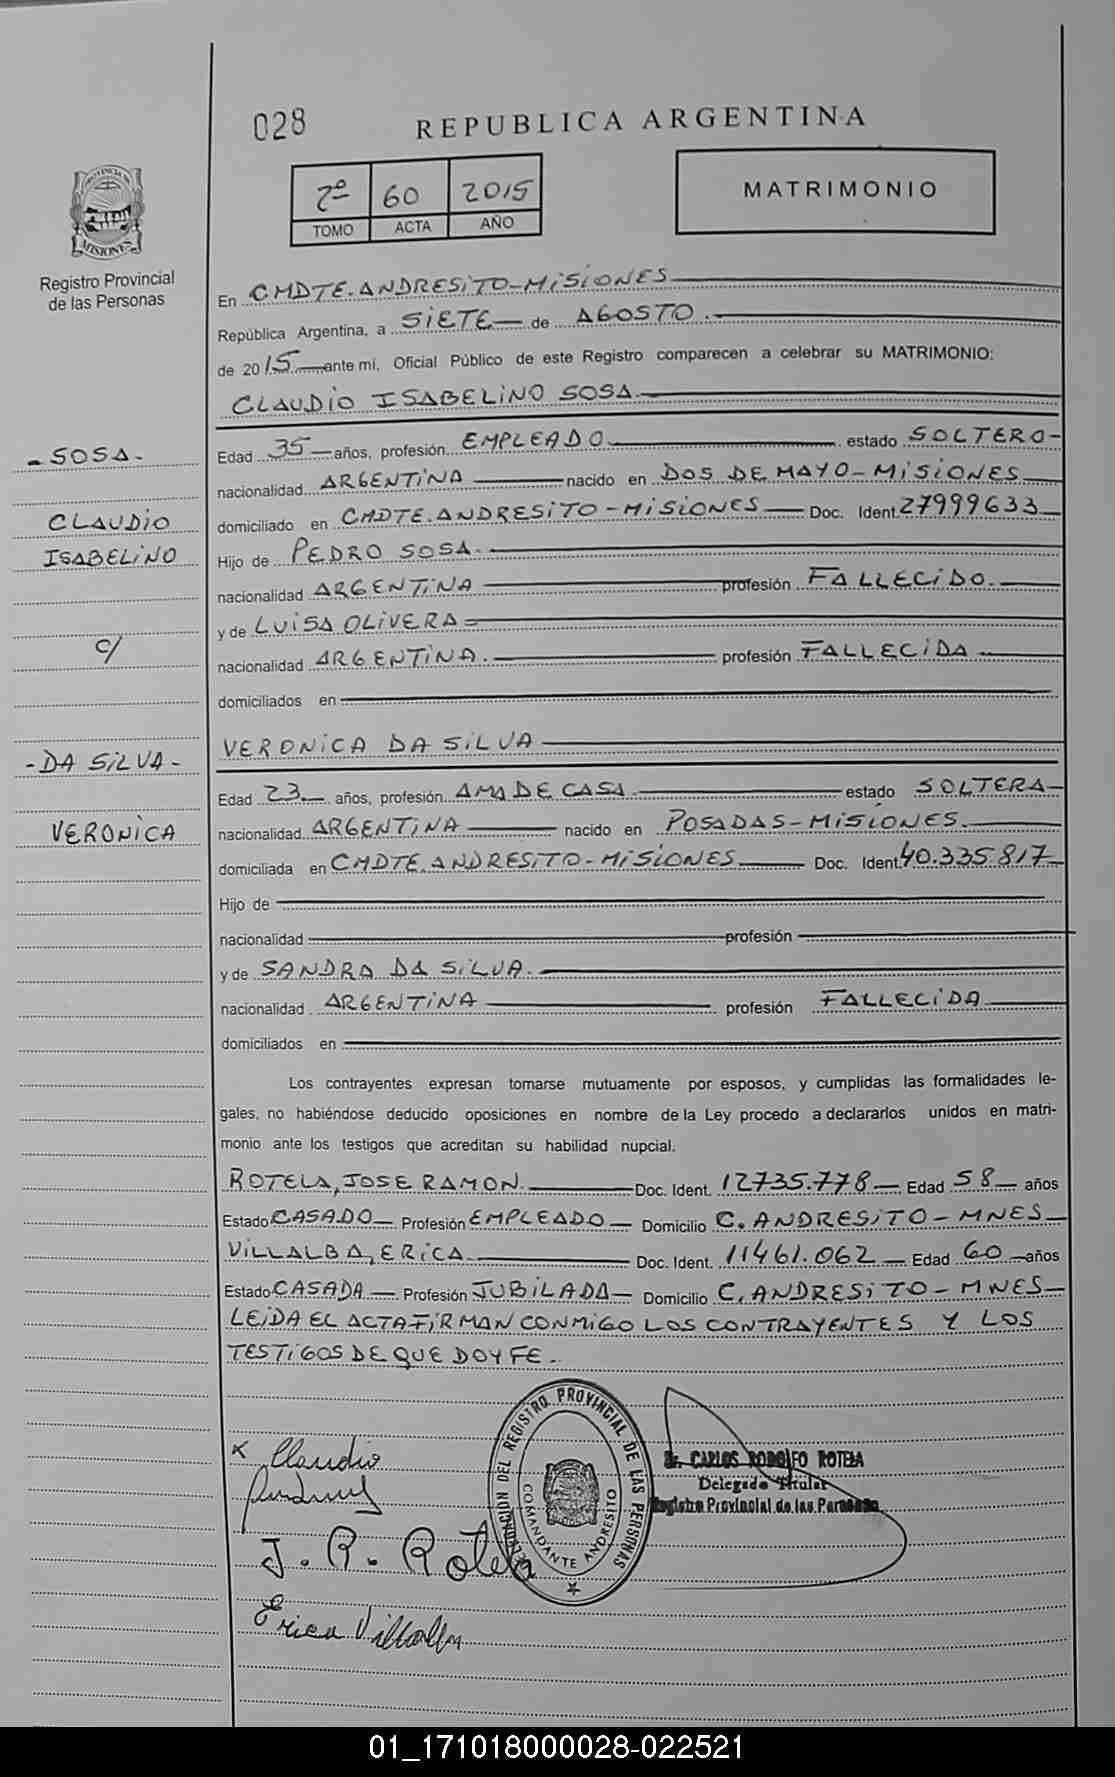 028
REPUBLICA ARGENTINA
2º 60 2015
TOMO ACTA AÑO
MATRIMONIO
PROVINCIA DE
MISIONES
Registro Provincial
de las Personas
En CMDTE. ANDRESITO-MISIONES
República Argentina, a SIETE de AGOSTO.
de 2015 ante mí, Oficial Público de este Registro comparecen a celebrar su MATRIMONIO:
CLAUDIO ISABELINO SOSA
- SOSA -
CLAUDIO
ISABELINO
c/
- DA SILVA -
VERONICA
Edad 35 años, profesión EMPLEADO estado SOLTERO-
nacionalidad ARGENTINA nacido en DOS DE MAYO-MISIONES
domiciliado en CMDTE. ANDRESITO-MISIONES Doc. Ident. 27999633
Hijo de PEDRO SOSA.
nacionalidad ARGENTINA profesión FALLECIDO.
y de LUISA OLIVERA
nacionalidad ARGENTINA. profesión FALLECIDA
domiciliados en
VERONICA DA SILVA
Edad 23 años, profesión AMA DE CASA. estado SOLTERA-
nacionalidad ARGENTINA nacido en POSADAS-MISIONES.
domiciliada en CMDTE. ANDRESITO-MISIONES Doc. Ident. 40.335.817
Hijo de
nacionalidad profesión
y de SANDRA DA SILVA.
nacionalidad ARGENTINA profesión FALLECIDA
domiciliados en
Los contrayentes expresan tomarse mutuamente por esposos, y cumplidas las formalidades le-
gales, no habiéndose deducido oposiciones en nombre de la Ley procedo a declararlos unidos en matri-
monio ante los testigos que acreditan su habilidad nupcial.
ROTELA, JOSE RAMON. Doc. Ident. 12735.778 Edad 58 años
Estado CASADO Profesión EMPLEADO Domicilio C. ANDRESITO-MNES
VILLALBA, ERICA. Doc. Ident. 11461.062 Edad 60 años
Estado CASADA Profesión JUBILADA Domicilio C. ANDRESITO-MNES
LEIDA EL ACTA FIRMAN CONMIGO LOS CONTRAYENTES Y LOS
TESTIGOS DE QUE DOY FE.
x Claudio
J. R. Rotela
Erica Villalba
DELEGACION DEL REGISTRO PROVINCIAL DE LAS PERSONAS
COMANDANTE ANDRESITO
Sr. CARLOS RODOLFO ROTELA
Delegado Titular
Registro Provincial de las Personas
01_171018000028-022521